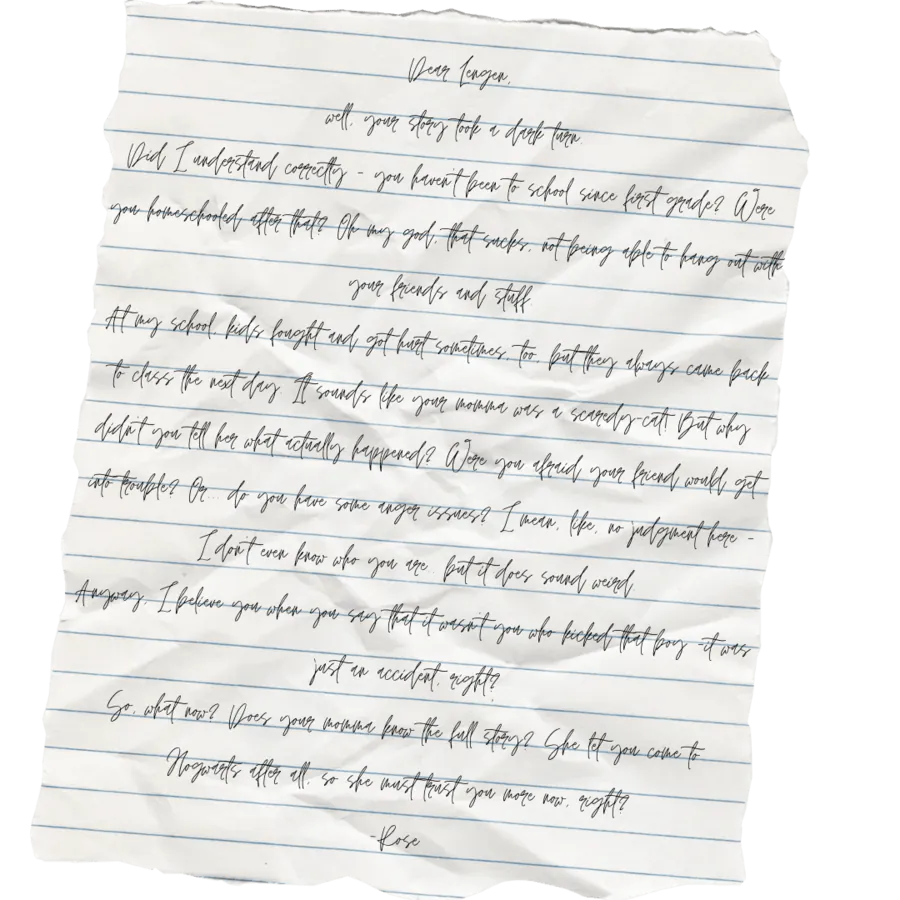 Dear Lengen,
well, your story took a dark turn.
Did I understand correctly - you haven't been to school since first grade? Were
you homeschooled after that? Oh my god, that sucks, not being able to hang out with
your friends and stuff.
At my school, kids fought and got hurt sometimes, too, but they always came back
to class the next day. It sounds like your momma was a scaredy-cat! But why
didn't you tell her what actually happened? Were you afraid your friend would get
into trouble? Or... do you have some anger issues? I mean, like, no judgment here -
I don't even know who you are, but it does sound weird.
Anyway, I believe you when you say that it wasn't you who kicked that boy -it was
just an accident, right?
So, what now? Does your momma know the full story? She let you come to
Hogwarts after all, so she must trust you more now, right?
-Rose